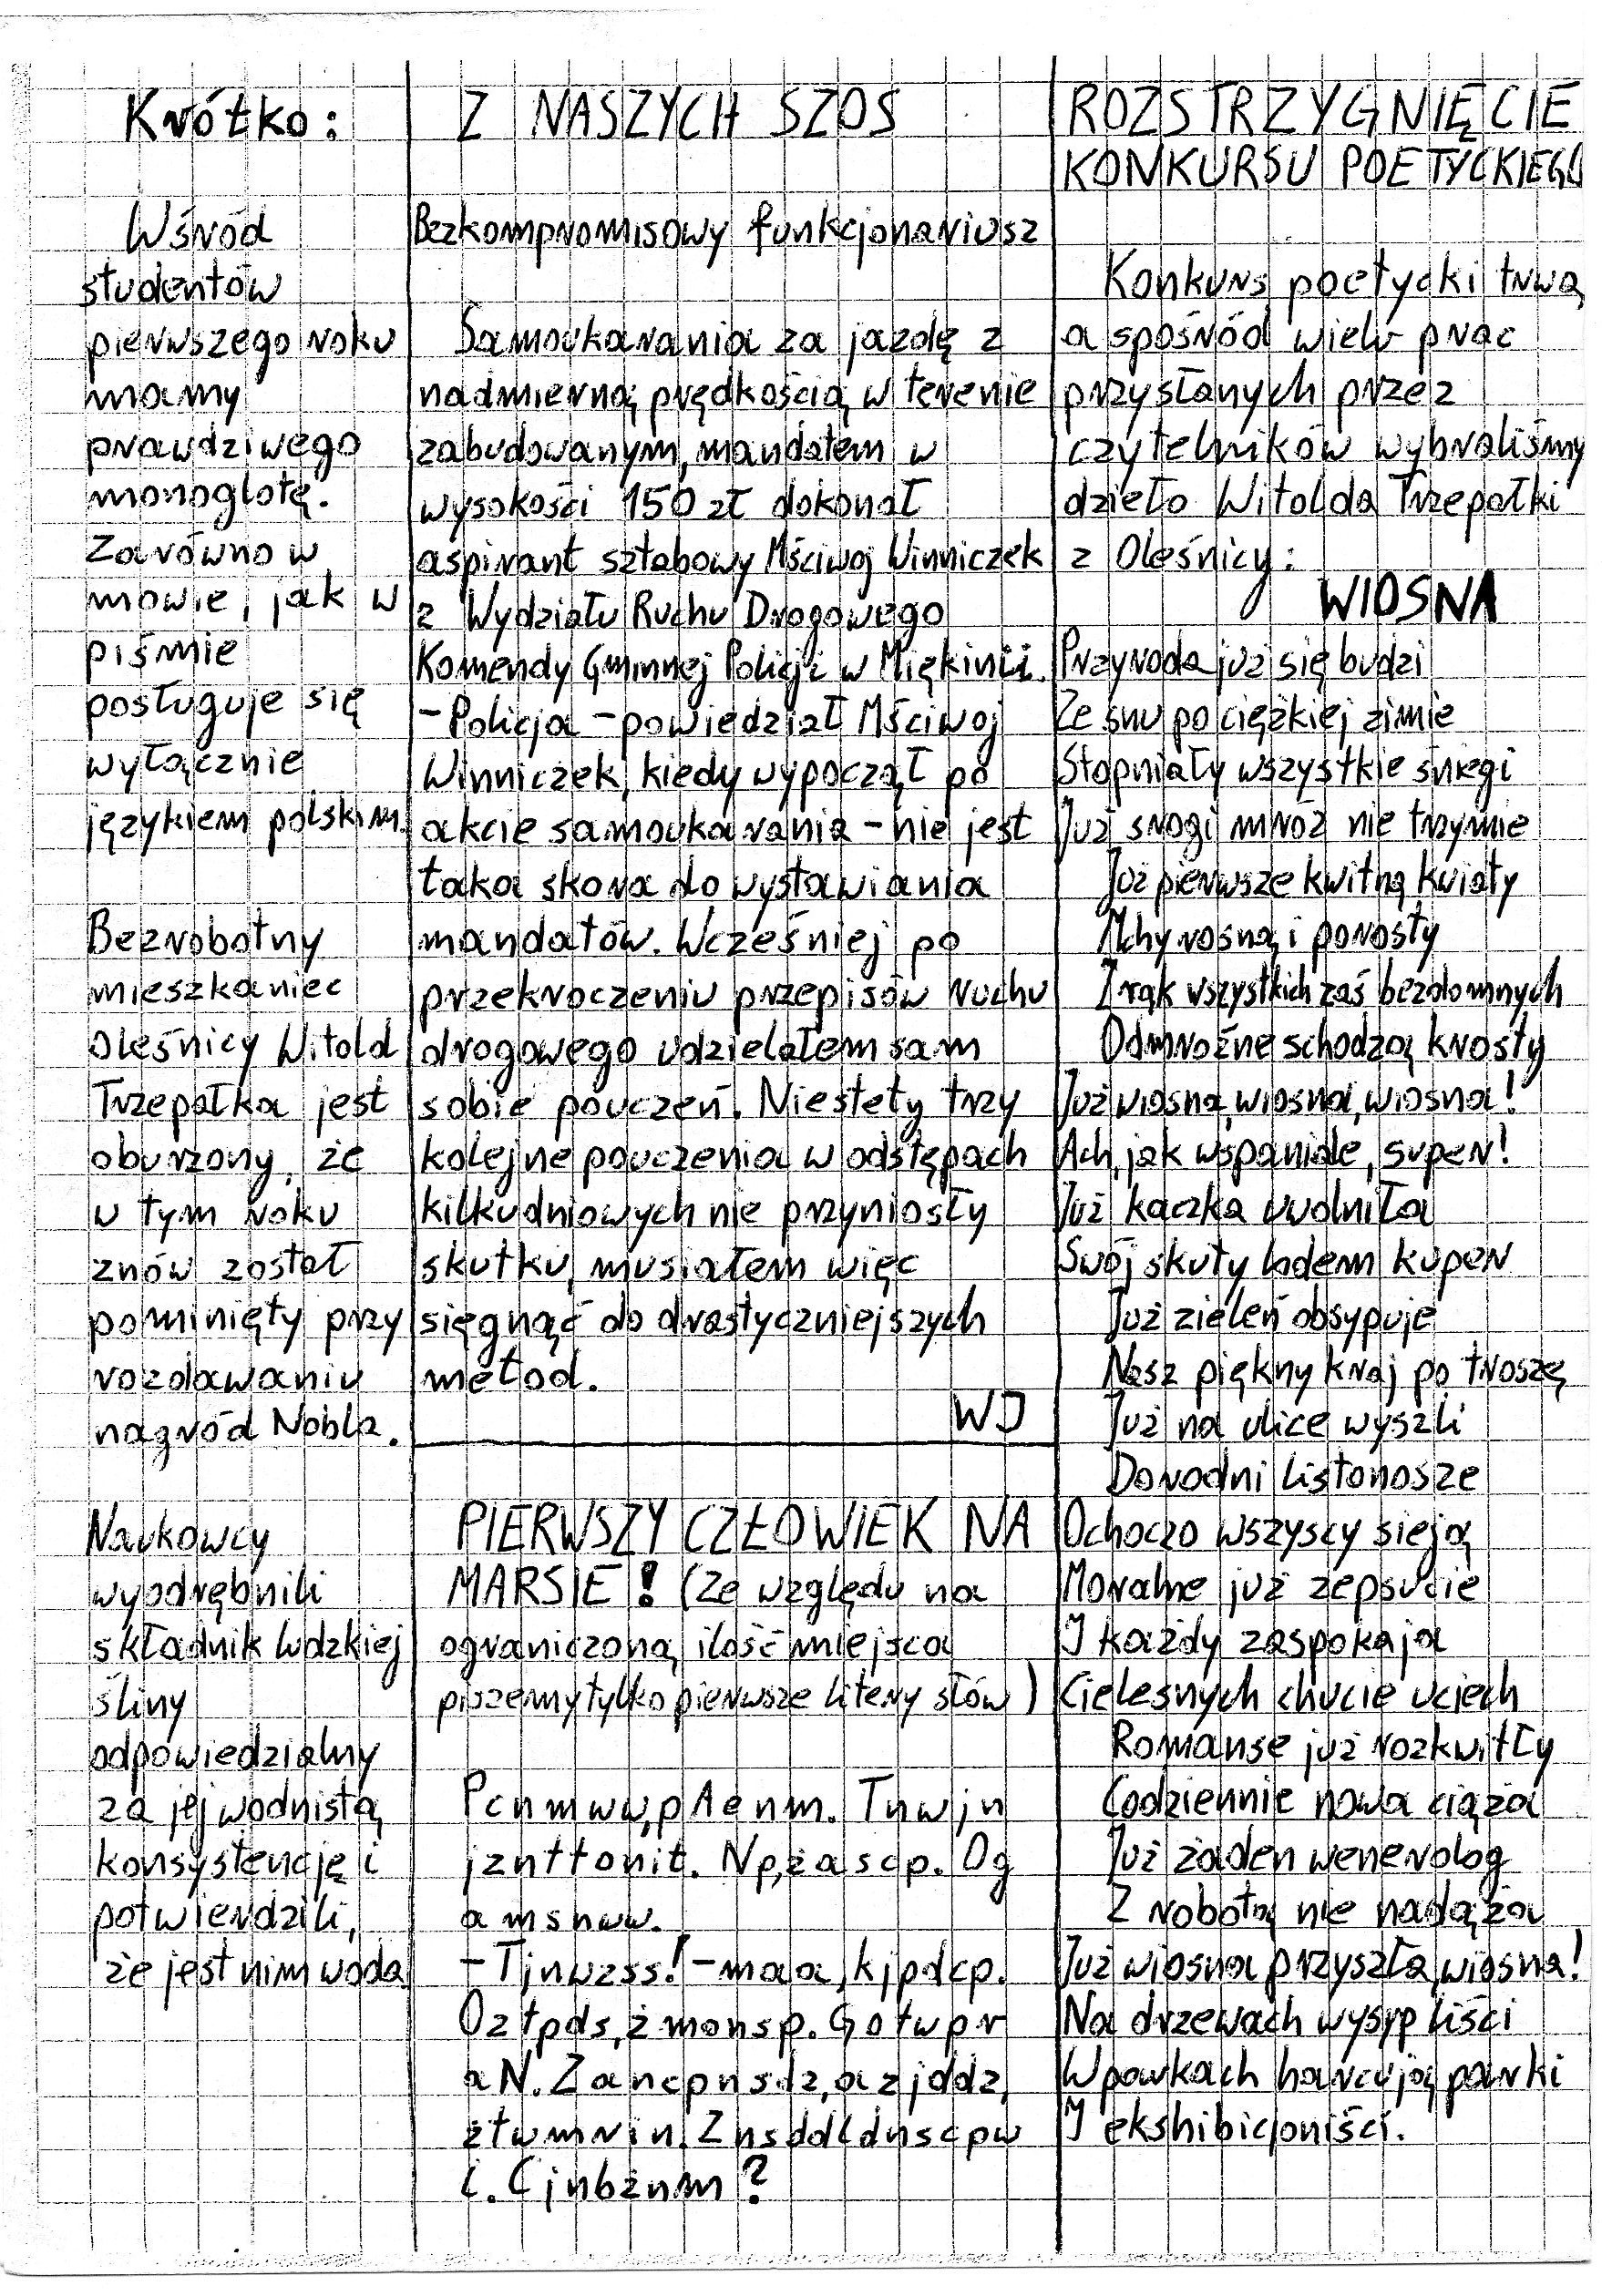 Krótko:
Wśród
studentów
pierwszego roku
mamy
prawdziwego
monoglotę.
Zarówno w
mowie, jak w
piśmie
posługuje się
wyłącznie
językiem polskim.
Bezrobotny
mieszkaniec
Oleśnicy Witold
Trzepałka jest
oburzony, że
w tym roku
znów został
pominięty przy
rozdawaniu
nagród Nobla.
Naukowcy
wyodrębnili
składnik ludzkiej
śliny
odpowiedzialny
za jej wodnistą
konsystencję i
potwierdzili,
że jest nim woda
Z NASZYCH SZOS
Bezkompromisowy funkcjonariusz
Samoukarania za jazdę z
nadmierną prędkością w terenie
zabudowanym, mandatem w
wysokości 150 zł dokonał
aspirant sztabowy Mściwoj Winniczek
z Wydziału Ruchu Drogowego
Komendy Gminnej Policji w Miękinii.
- Policja - powiedział Mściwoj
Winniczek, kiedy wypoczął po
akcie samoukarania - nie jest
taka skora do wystawiania
mandatów. Wcześniej po
przekroczeniu przepisów ruchu
drogowego udzielałem sam
sobie pouczeń. Niestety trzy
kolejne pouczenia w odstępach
kilkudniowych nie przyniosły
skutku, musiałem więc
sięgnąć do drastyczniejszych
metod.
WJ
PIERWSZY CZŁOWIEK NA
MARSIE! (Ze względu na
ograniczoną ilość miejsca
piszemy tylko pierwsze litery słów)
Pcnmww,pAenm. Tnwjn
jznttonit. Np,żascp. Og
amsnww.
- Tjnwzss! - maa, kjpdcp.
Oztpds, żmonsp. Gotwpr
aN. Zancpnsdz, azjddz,
żtwmrin. Znsddldnscpw
i. Cjnbżnm?
ROZSTRZYGNIĘCIE
KONKURSU POETYCKIEGO
Konkurs poetycki trwa,
a spośród wielu prac
przysłanych przez
czytelników wybraliśmy
dzieło Witolda Trzepałki
z Oleśnicy:
WIOSNA
Przyroda już się budzi
Ze snu po ciężkiej zimie
Stopniały wszystkie śniegi
Już srogi mróz nie trzymie
Już pierwsze kwitną kwiaty
Mchy rosną i porosty
Z rąk wszystkich zaś bezdomnych
Odmroźne schodzą krosty
Już wiosna, wiosna, wiosna!
Ach, jak wspaniale, super!
Już kaczka uwolniła
Swój skuty lodem kuper
Już zieleń obsypuje
Nasz piękny kraj po troszę
Już na ulice wyszli
Dorodni listonosze
Ochoczo wszyscy sieją
Moralne już zepsucie
I każdy zaspokaja
Cielesnych chucie uciech
Romanse już rozkwitły
Codziennie nowa ciąża
Już żaden wenerolog
Z robotą nie nadąża
Już wiosna przyszła, wiosna!
Na drzewach wysyp liści
W parkach harcują parki
I ekshibicjoniści.